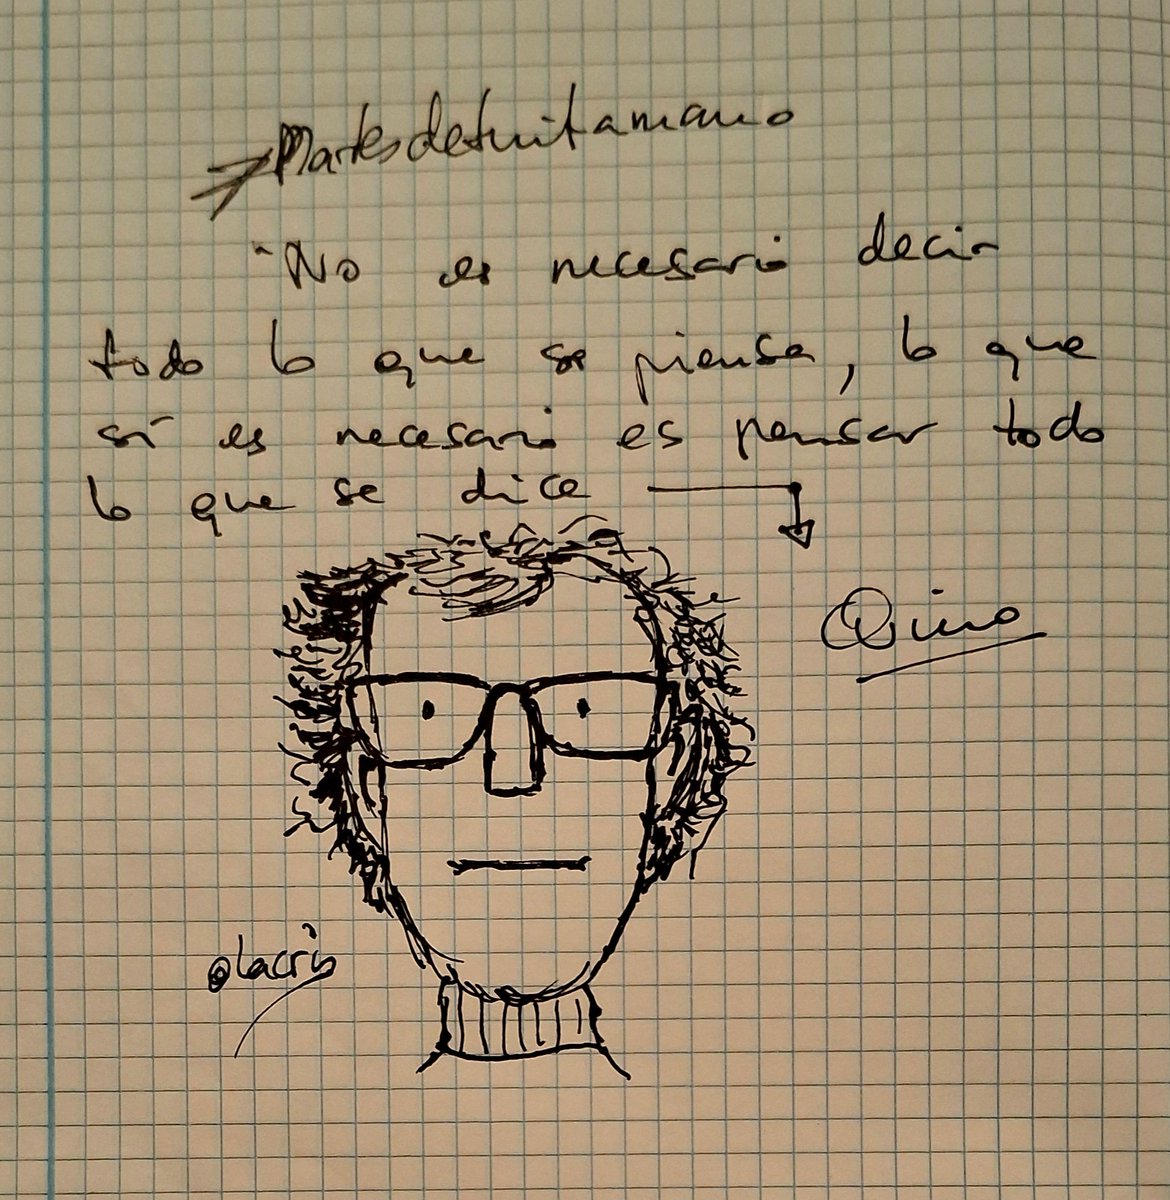 Martesdetuitamano
"No es necesario decir
todo lo que se piensa, lo que
sí es necesario es pensar todo
lo que se dice
Quino
@lacris